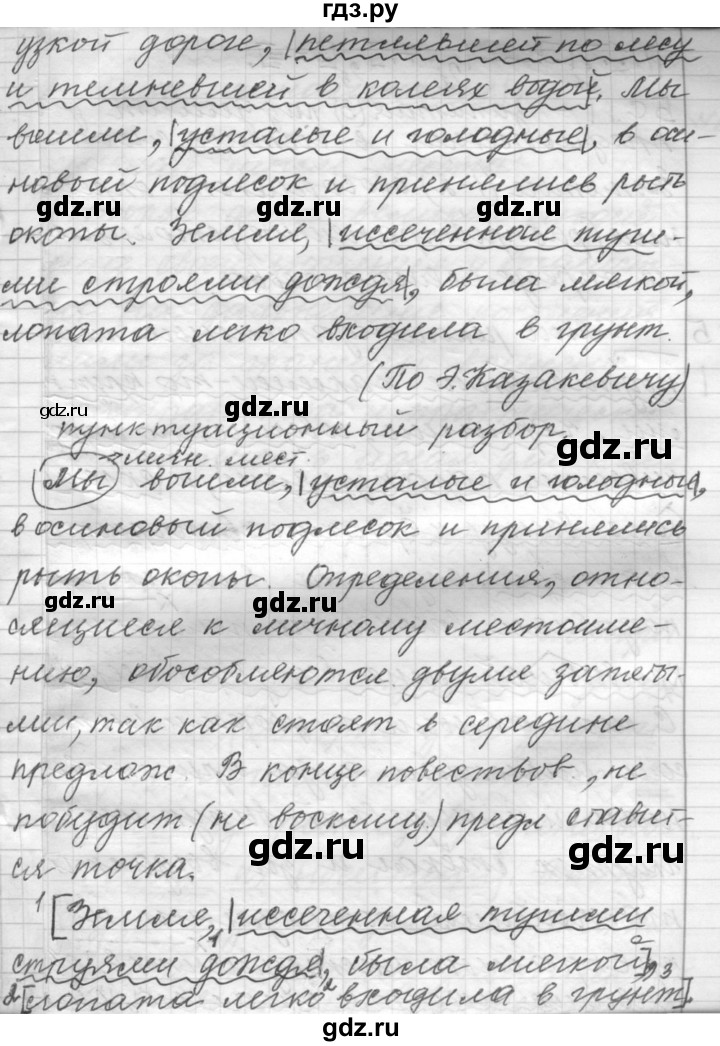 гдз.ру
узкой дороге, петлявшей по лесу
и темневшей в колеях водой. Мы
вышли, усталые и голодные, в оси-
новый подлесок и принялись рыть
gdz.ru gdz.ru gdz.ru
окопы. Земля, иссеченная туги-
ми строями дождя, была мягкой,
лопата легко входила в грунт.
(По Э. Казакевичу)
gdz.ru gdz.ru gdz.ru
пунктуационный разбор.
личн. мест.
Мы вышли, усталые и голодные,
в осиновый подлесок и принялись
рыть окопы. Определения, отно-
gdz.ru gdz.ru gdz.ru
сящиеся к личному местоиме-
нию, обособляются двумя запяты-
ми, так как стоят в середине
предлож. В конце повествов., не
побудит (не восклиц.) предл ставит-
ся точка.
gdz.ru gdz.ru gdz.ru
1 [Земля, иссеченная тугими
струями дождя, была мягкой], 3
2 [лопата легко входила в грунт].
gdz.ru